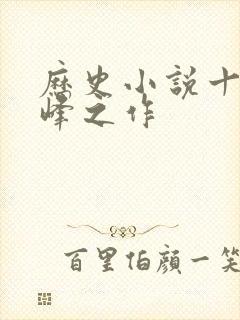 歷史小說十
峰之作
百里伯顏一笑